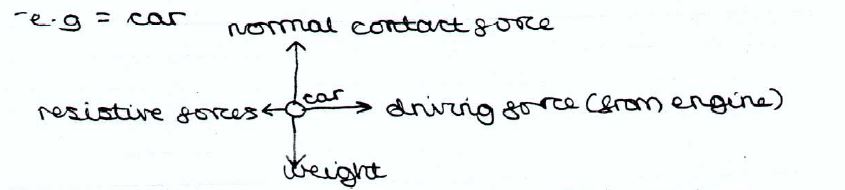 -e.g = car
normal contact force
car
resistive forces
driving force (from engine)
weight